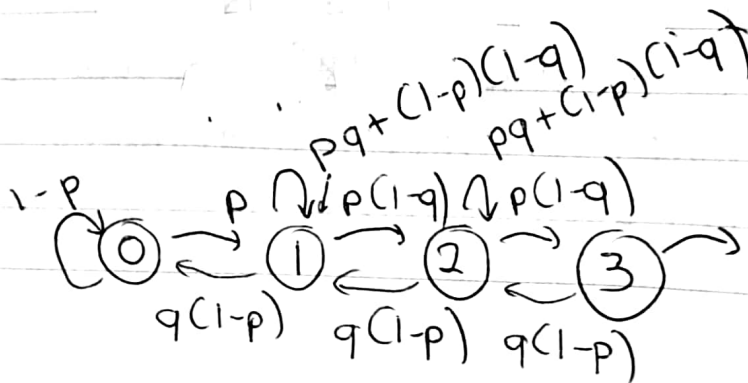 pq+(1-p)(1-q) pq+(1-p)(1-q)
1-p p p(1-q) p(1-q)
0 1 2 3
q(1-p) q(1-p) q(1-p)